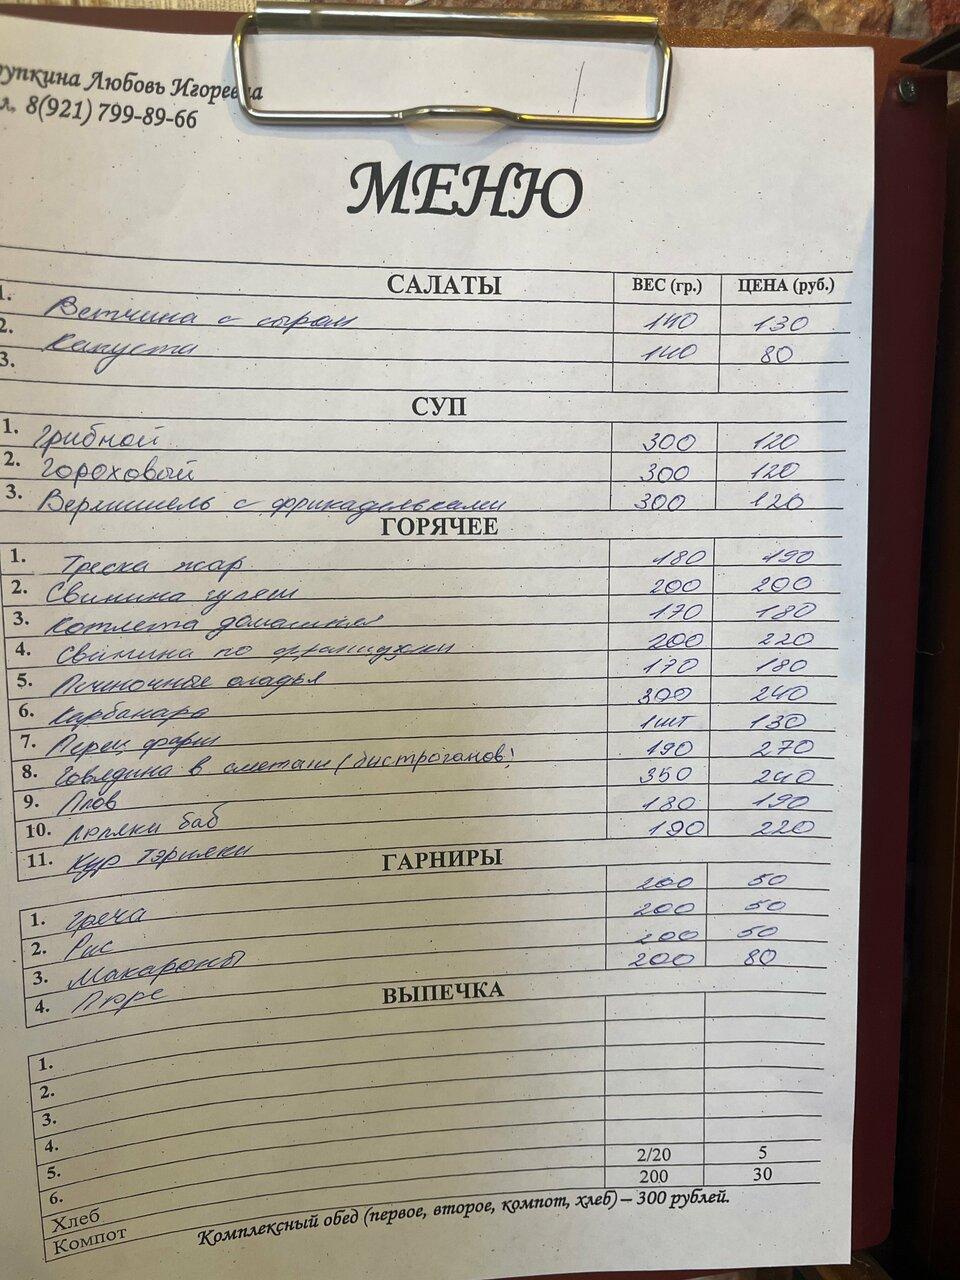 рупкина Любовь Игоревна
л. 8(921) 799-89-66
МЕНЮ
САЛАТЫ ВЕС (гр.) ЦЕНА (руб.)
1. Ветчина с сыром 140 130
2. Капуста 140 80
3.
СУП
1. Грибной 300 120
2. Гороховый 300 120
3. Вермишель с фрикадельками 300 120
ГОРЯЧЕЕ
1. Треска жар 180 190
2. Свинина гуляш 200 200
3. Котлета домашняя 170 180
4. Свинина по французски 200 220
5. Печеночные оладья 170 180
6. Карбонара 300 240
7. Перец фарш 1шт 130
8. Говядина в сметане (бистроганов) 190 270
9. Плов 350 240
10. Люляки баб 180 190
11. Кур тэрияки 190 220
ГАРНИРЫ
1. Греча 200 50
2. Рис 200 50
3. Макароны 200 50
4. Пюре 200 80
ВЫПЕЧКА
1.
2.
3.
4.
5.
6.
Хлеб 2/20 5
Компот 200 30
Комплексный обед (первое, второе, компот, хлеб) – 300 рублей.